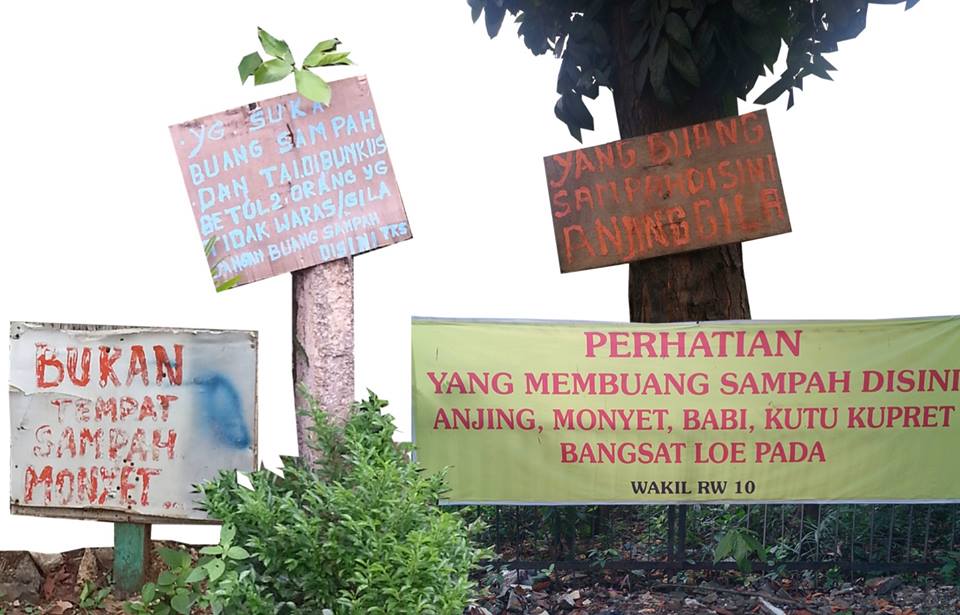 YG SUKA
BUANG SAMPAH
DAN TAI.DIBUNKUS
BETOL2.ORANG YG
TIDAK WARAS/GILA
JANGAH BUANG SAMPAH
DISINI TKS
YANG BUANG
SAMPAH DISINI
ANJING GILA
BUKAN
TEMPAT
SAMPAH
MONYET
PERHATIAN
YANG MEMBUANG SAMPAH DISINI
ANJING, MONYET, BABI, KUTU KUPRET
BANGSAT LOE PADA
WAKIL RW 10